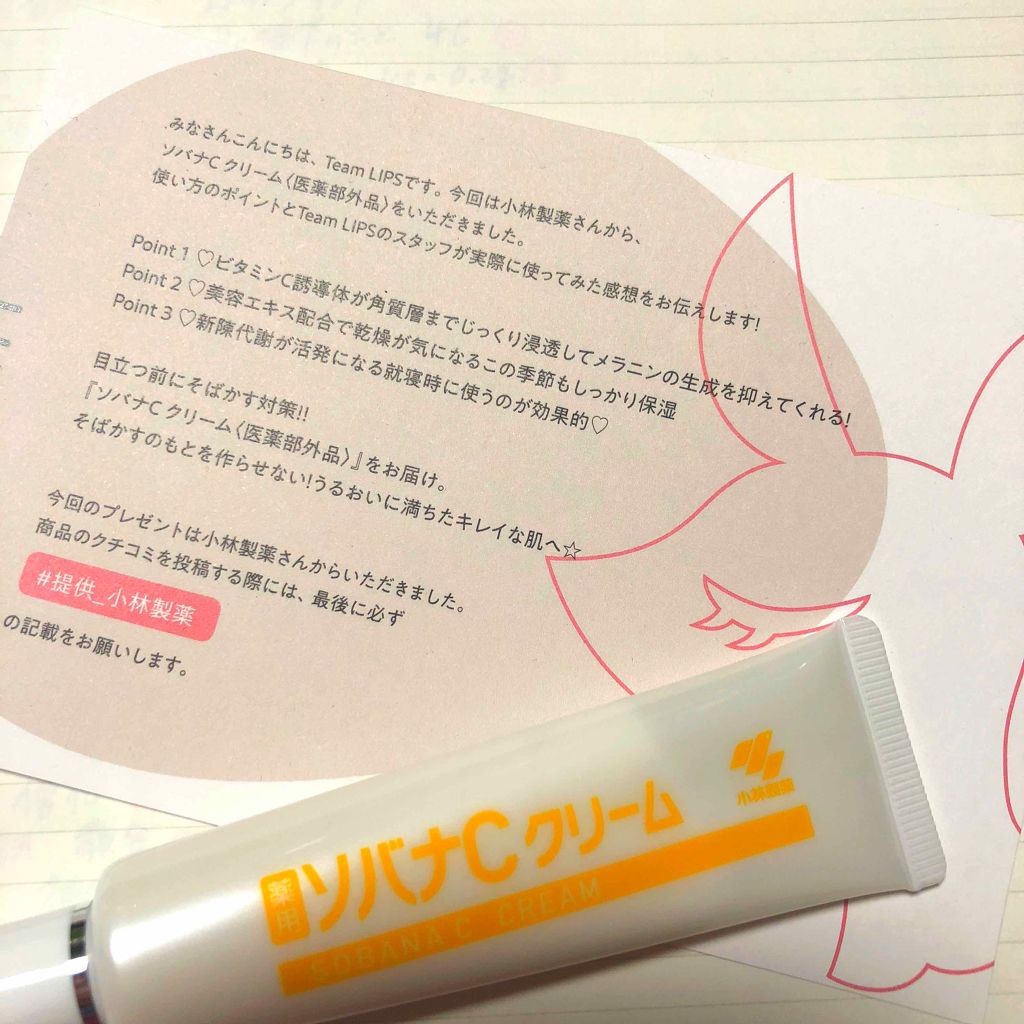 みなさんこんにちは、Team LIPSです。今回は小林製薬さんから、
ソバナC クリーム〈医薬部外品〉をいただきました。
使い方のポイントとTeam LIPSのスタッフが実際に使ってみた感想をお伝えします!
Point 1 ♡ビタミンC誘導体が角質層までじっくり浸透してメラニンの生成を抑えてくれる!
Point 2 ♡美容エキス配合で乾燥が気になるこの季節もしっかり保湿
Point 3 ♡新陳代謝が活発になる就寝時に使うのが効果的♡
目立つ前にそばかす対策!!
『ソバナC クリーム〈医薬部外品〉』をお届け。
そばかすのもとを作らせない!うるおいに満ちたキレイな肌へ☆
今回のプレゼントは小林製薬さんからいただきました。
商品のクチコミを投稿する際には、最後に必ず
#提供_小林製薬
の記載をお願いします。
小林製薬
薬用 ソバナC クリーム
SOBANA C CREAM